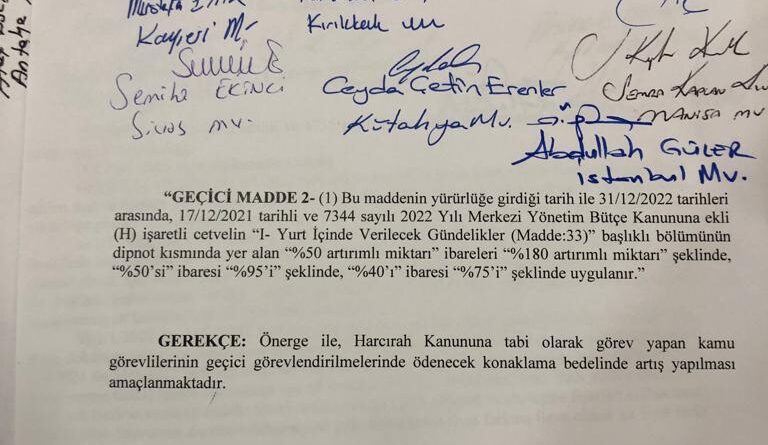 Mustafa
Kayseri Mv.
Kırıkkale
Semiha EKİNCİ
Sivas mv.
Ceyda Çetin Erenler
Kütahya Mv.
MANİSA MV
Abdullah GÜLER
istanbul Mv.
“GEÇİCİ MADDE 2- (1) Bu maddenin yürürlüğe girdiği tarih ile 31/12/2022 tarihleri
arasında, 17/12/2021 tarihli ve 7344 sayılı 2022 Yılı Merkezi Yönetim Bütçe Kanununa ekli
(H) işaretli cetvelin “I- Yurt İçinde Verilecek Gündelikler (Madde:33)” başlıklı bölümünün
dipnot kısmında yer alan “%50 artırımlı miktarı” ibareleri “%180 artırımlı miktarı” şeklinde,
“%50’si” ibaresi “%95’i” şeklinde, “%40’ı” ibaresi “%75’i” şeklinde uygulanır.”
GEREKÇE: Önerge ile, Harcırah Kanununa tabi olarak görev yapan kamu
görevlilerinin geçici görevlendirilmelerinde ödenecek konaklama bedelinde artış yapılması
amaçlanmaktadır.